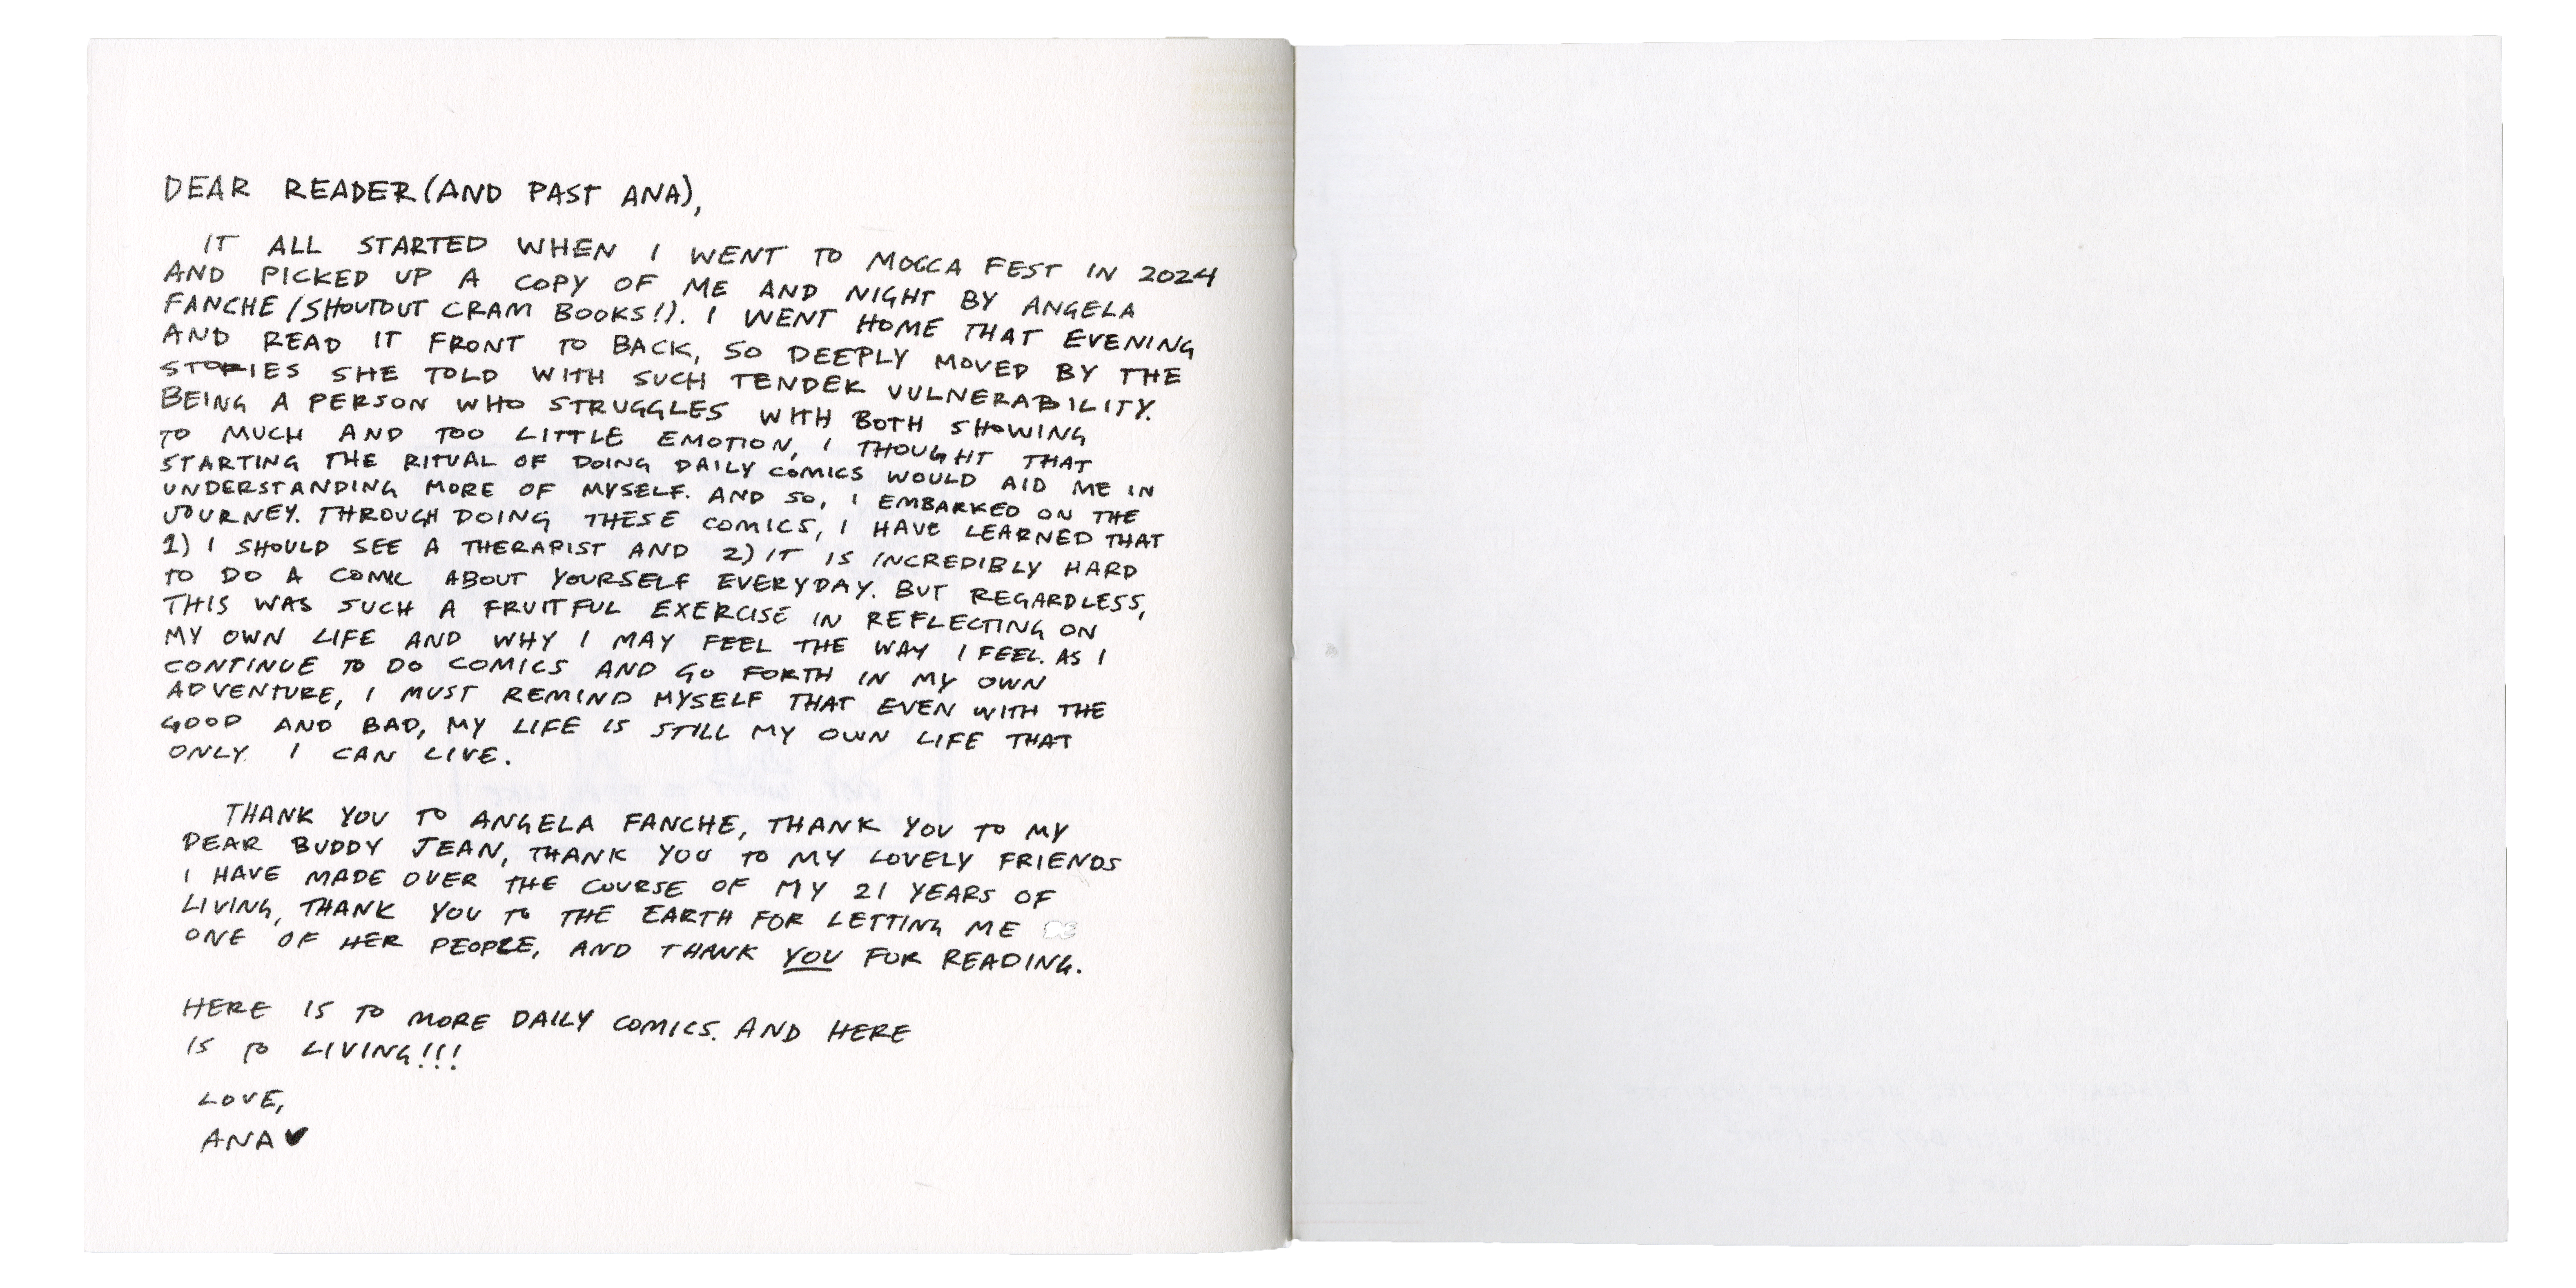 DEAR READER (AND PAST ANA),
IT ALL STARTED WHEN I WENT TO MOCCA FEST IN 2024
AND PICKED UP A COPY OF ME AND NIGHT BY ANGELA
FANCHE (SHOUTOUT CRAM BOOKS!). I WENT HOME THAT EVENING
AND READ IT FRONT TO BACK, SO DEEPLY MOVED BY THE
STORIES SHE TOLD WITH SUCH TENDER VULNERABILITY.
BEING A PERSON WHO STRUGGLES WITH BOTH SHOWING
TO MUCH AND TOO LITTLE EMOTION, I THOUGHT THAT
STARTING THE RITUAL OF DOING DAILY COMICS WOULD AID ME IN
UNDERSTANDING MORE OF MYSELF. AND SO, I EMBARKED ON THE
JOURNEY. THROUGH DOING THESE COMICS, I HAVE LEARNED THAT
1) I SHOULD SEE A THERAPIST AND 2) IT IS INCREDIBLY HARD
TO DO A COMIC ABOUT YOURSELF EVERYDAY. BUT REGARDLESS,
THIS WAS SUCH A FRUITFUL EXERCISE IN REFLECTING ON
MY OWN LIFE AND WHY I MAY FEEL THE WAY I FEEL. AS I
CONTINUE TO DO COMICS AND GO FORTH IN MY OWN
ADVENTURE, I MUST REMIND MYSELF THAT EVEN WITH THE
GOOD AND BAD, MY LIFE IS STILL MY OWN LIFE THAT
ONLY I CAN LIVE.
THANK YOU TO ANGELA FANCHE, THANK YOU TO MY
DEAR BUDDY JEAN, THANK YOU TO MY LOVELY FRIENDS
I HAVE MADE OVER THE COURSE OF MY 21 YEARS OF
LIVING, THANK YOU TO THE EARTH FOR LETTING ME
ONE OF HER PEOPLE, AND THANK YOU FOR READING.
HERE IS TO MORE DAILY COMICS. AND HERE
IS TO LIVING!!!
LOVE,
ANA